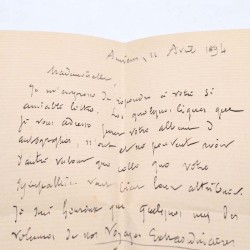 Amiens, 12 Avril 1894
Mademoiselle,
Je m'empresse de répondre à votre si
aimable lettre. Les quelques lignes que
je vous adresse pour votre album d'
autographes, n'ont et ne peuvent avoir
d'autre valeur que celle que votre
sympathie veut bien leur attribuer.
Je suis heureux que quelques uns des
volumes de nos Voyages Extraordinaires